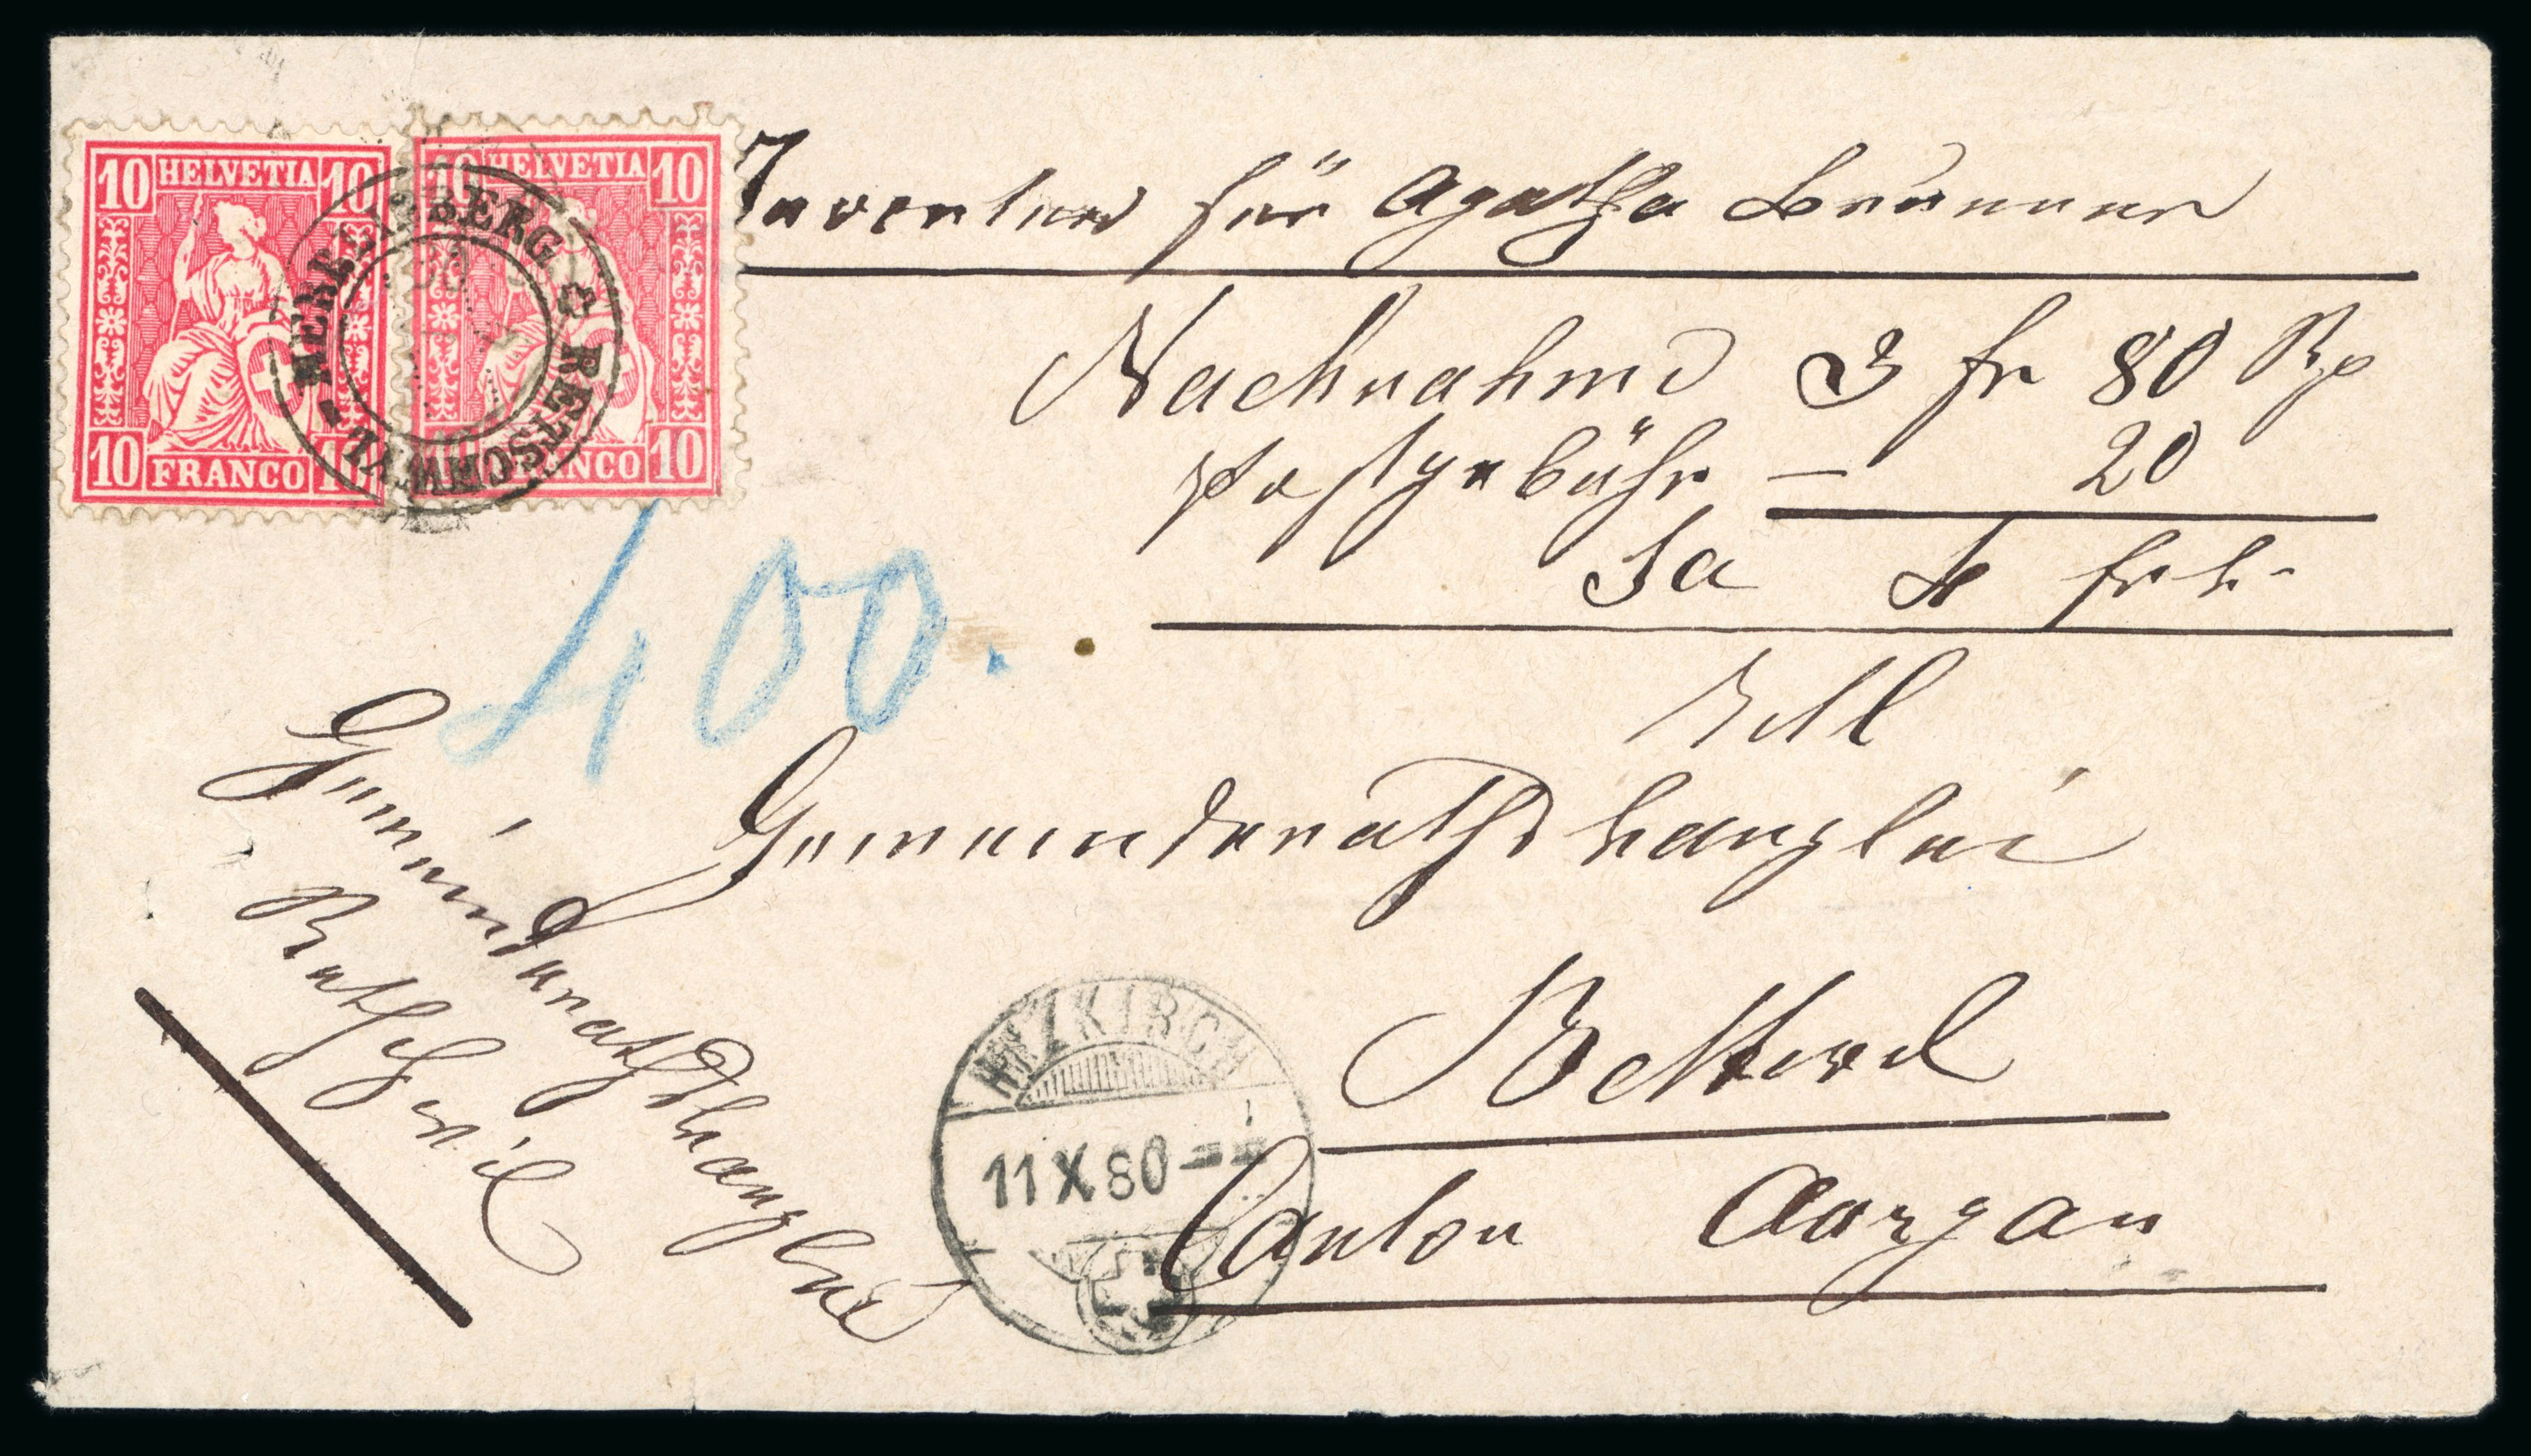 10 HELVETIA 10
10 FRANCO 10
10 HELVETIA 10
10 FRANCO 10
RETSCHWYL
400.
Inventur für Agatha Brunner
Nachnahme 3 fr 80 Rp
Postgebühr — 20
Sa 4 frk-
Gemeinderathskanzlei
Bettwil
Canton Aargau
Gemeinderathskanzlei
Retschwil
HITZKIRCH
11 X 80